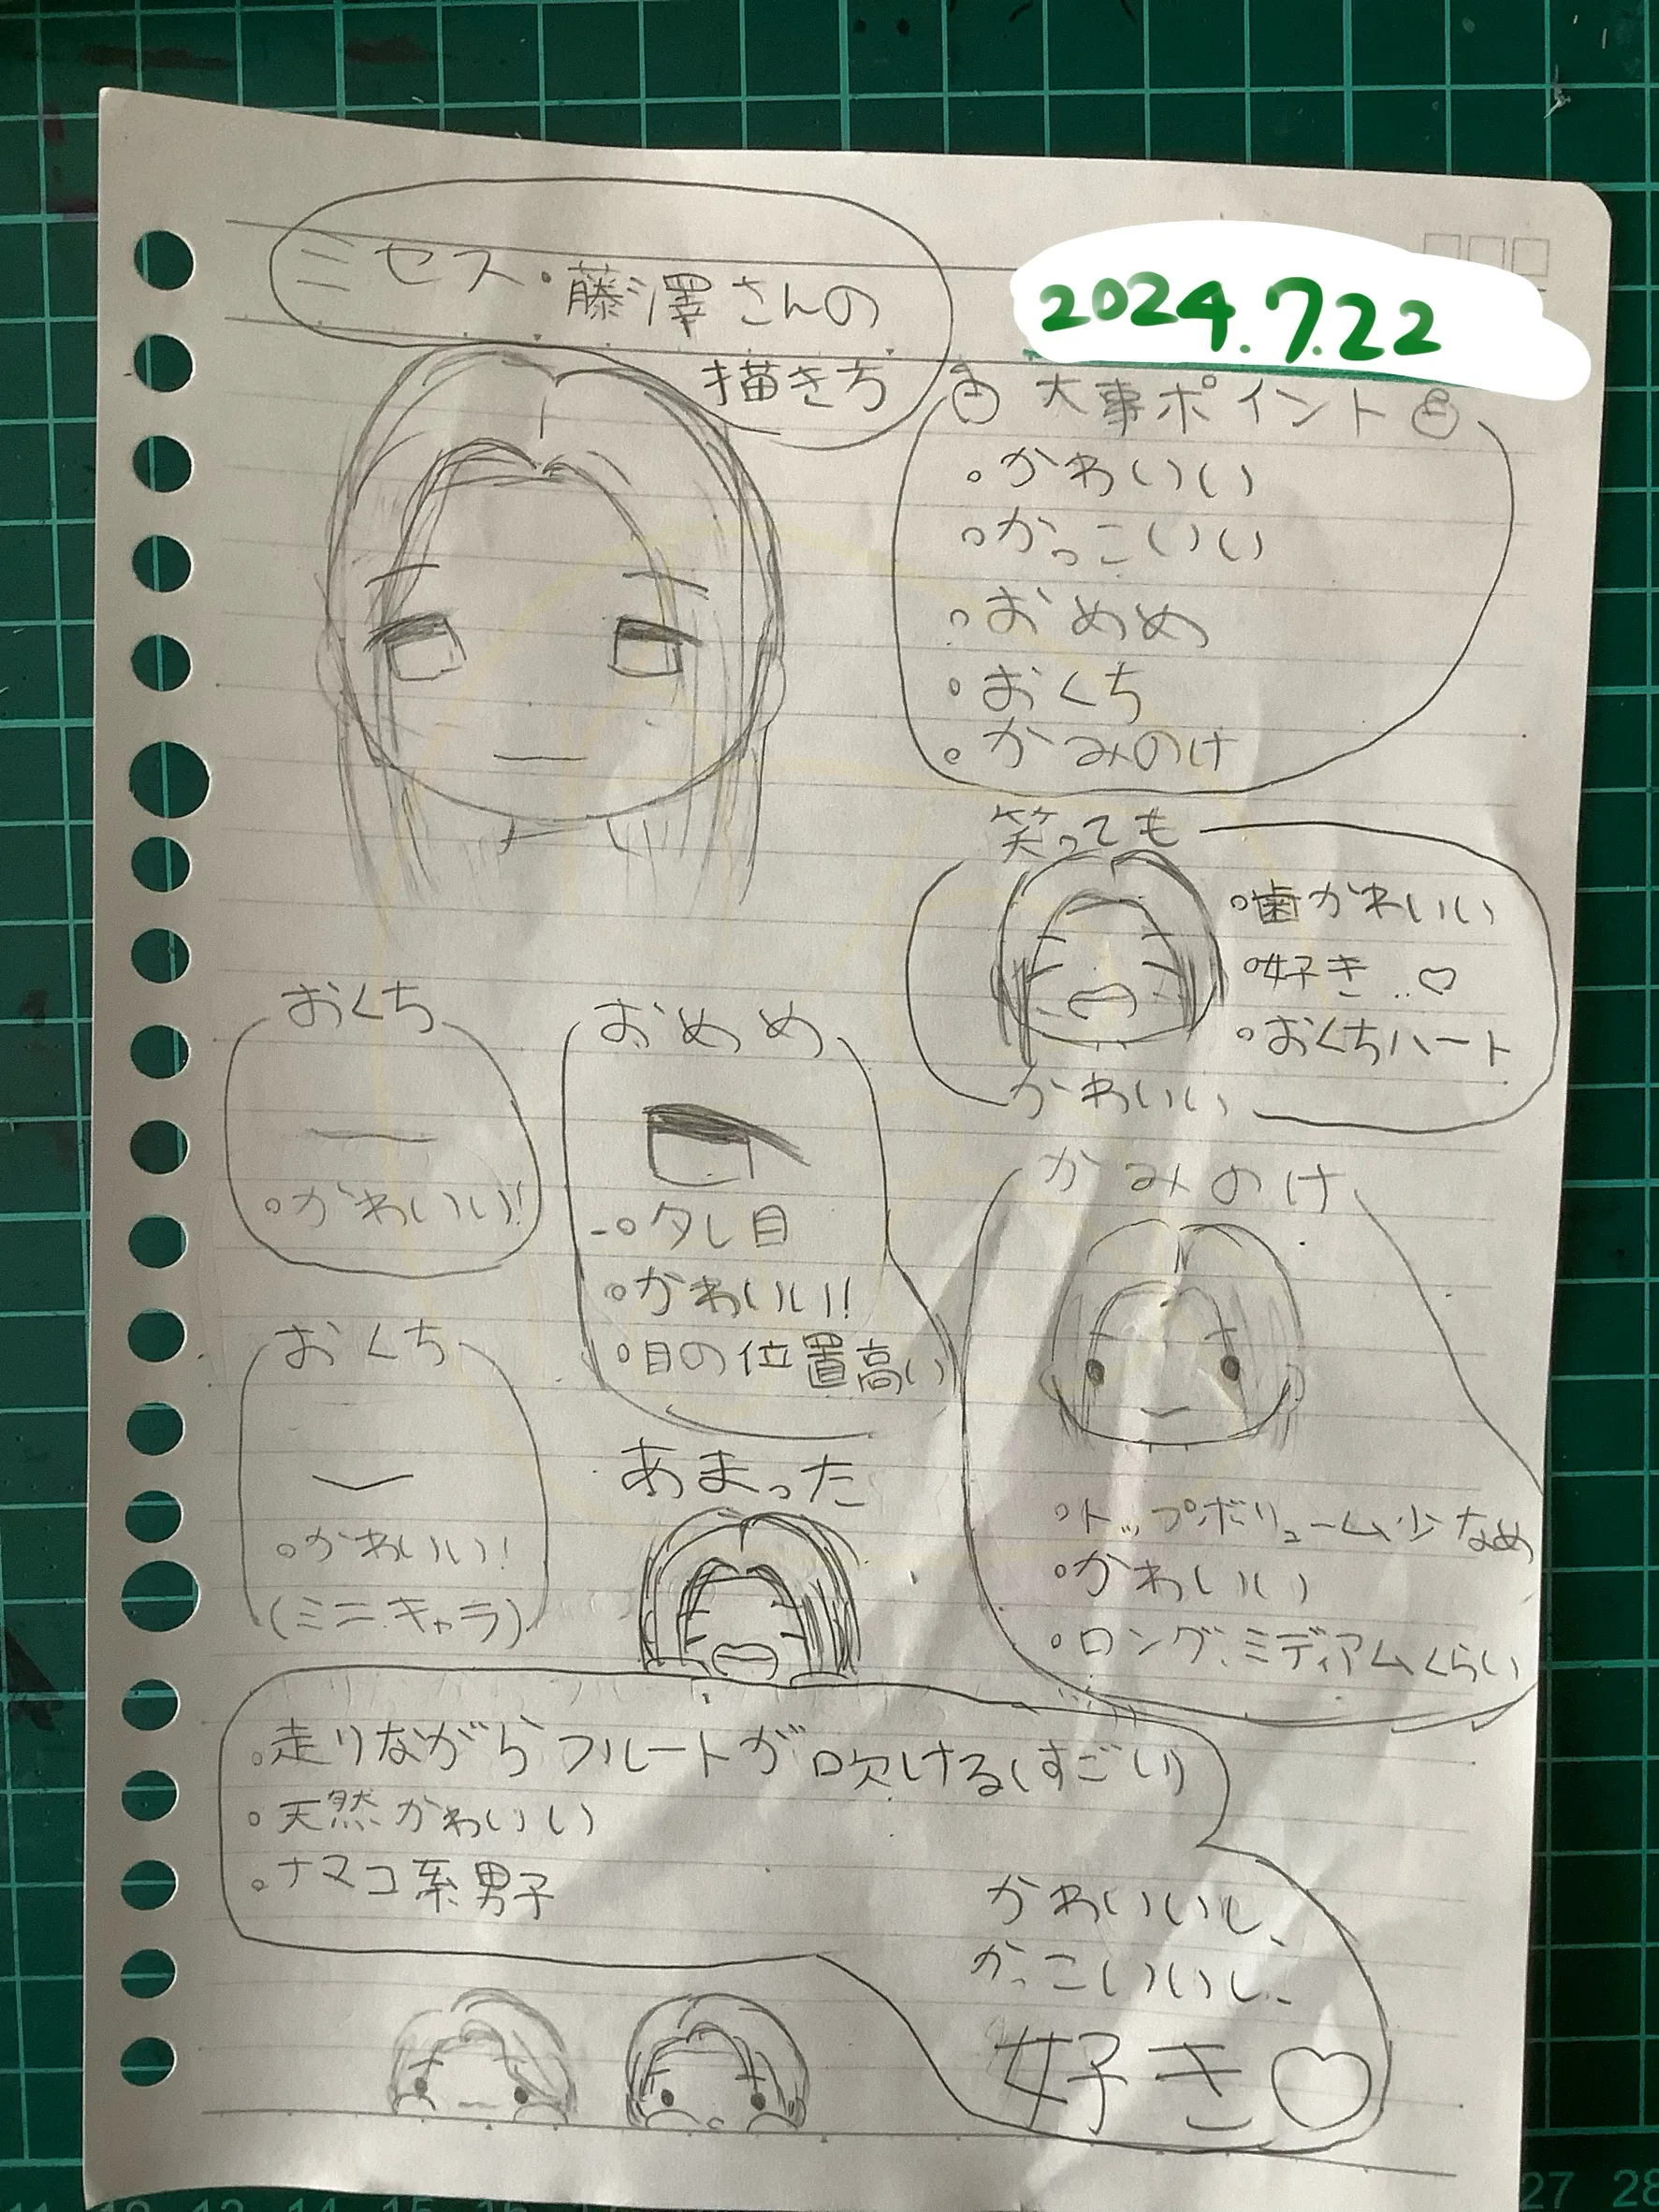 ミセス・藤澤さんの
描き方
2024.7.22
大事ポイント
。かわいい
。かっこいい
。おめめ
。おくち
。かみのけ
笑っても
。歯かわいい
。好き..♡
。おくちハート
かわいい
おくち
。かわいい!
おめめ
-。タレ目
。かわいい!
。目の位置高い
かみのけ
。トップボリューム少なめ
。かわいい
。ロング、ミディアムくらい
おくち
。かわいい!
(ミニキャラ)
あまった
。走りながらフルートが吹ける(すごい)
。天然かわいい
。ナマコ系男子
かわいいし、
かっこいいし、
好き♡
27 28